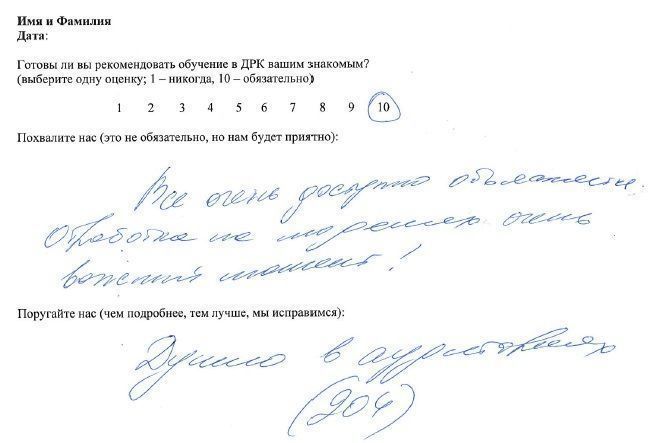 Имя и Фамилия
Дата:
Готовы ли вы рекомендовать обучение в ДРК вашим знакомым?
(выберите одну оценку; 1 – никогда, 10 – обязательно)
1 2 3 4 5 6 7 8 9 10
Похвалите нас (это не обязательно, но нам будет приятно):
Все очень доступно объясняется.
Отработка на моделях очень
важный момент!
Поругайте нас (чем подробнее, тем лучше, мы исправимся):
Душно в аудиториях
(204)